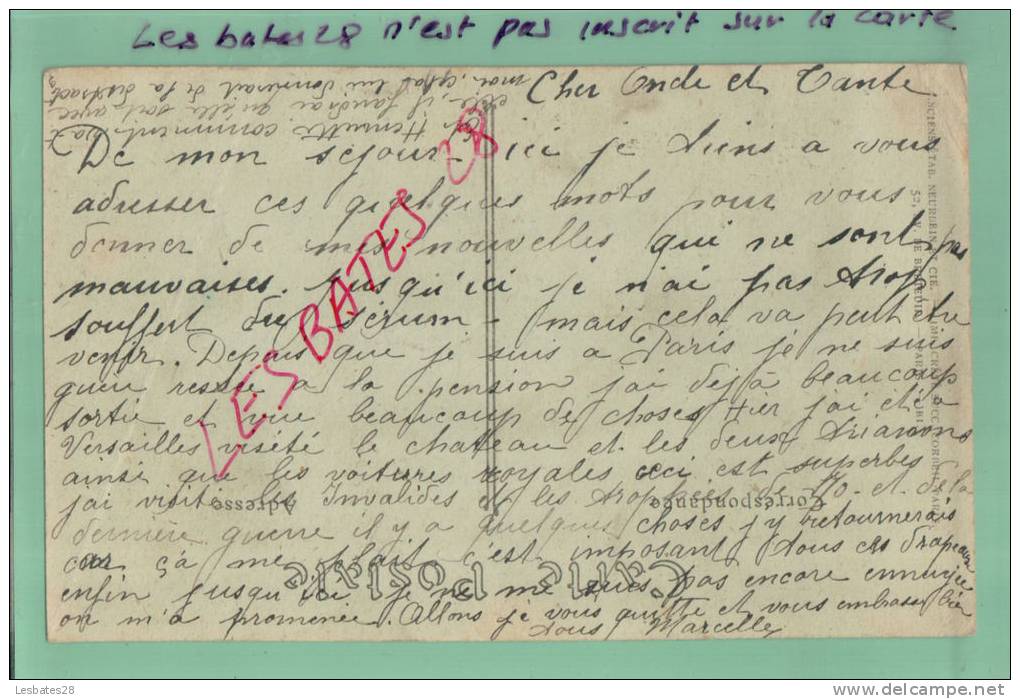 Les bates28 n'est pas inscrit sur la carte
Cher Oncle et Tante
De mon séjour ici je viens a vous
adresser ces quelques mots pour vous
donner de mes nouvelles qui ne sont pas
mauvaises. jusqu'ici je n'ai pas trop
souffert du sérum - mais cela va peut être
venir. Depuis que je suis a Paris je ne suis
guère restée a la pension j'ai déjà beaucoup
sortie et vue beaucoup de choses Hier j'ai été a
Versailles visité le chateau et les deux trianons
ainsi que les voitures royales ceci est superbes
j'ai visité les Invalides et les trophées de 70. et de la
dernière guerre il y a quelques choses j'y retournerais
car çà me plait c'est imposant tous ces drapeaux
enfin jusqu'ici je ne me suis pas encore ennuyée
on m'a promenée. Allons je vous quitte et vous embrasse bien
tous Marcelle
Henriette comment va t
elle, il faudrai qu'elle soit avec
moi, çà lui donnerait de la distraction
LES BATES 28
Carte Postale
Correspondance
Adresse
Lesbates28
http://www.delcampe.net